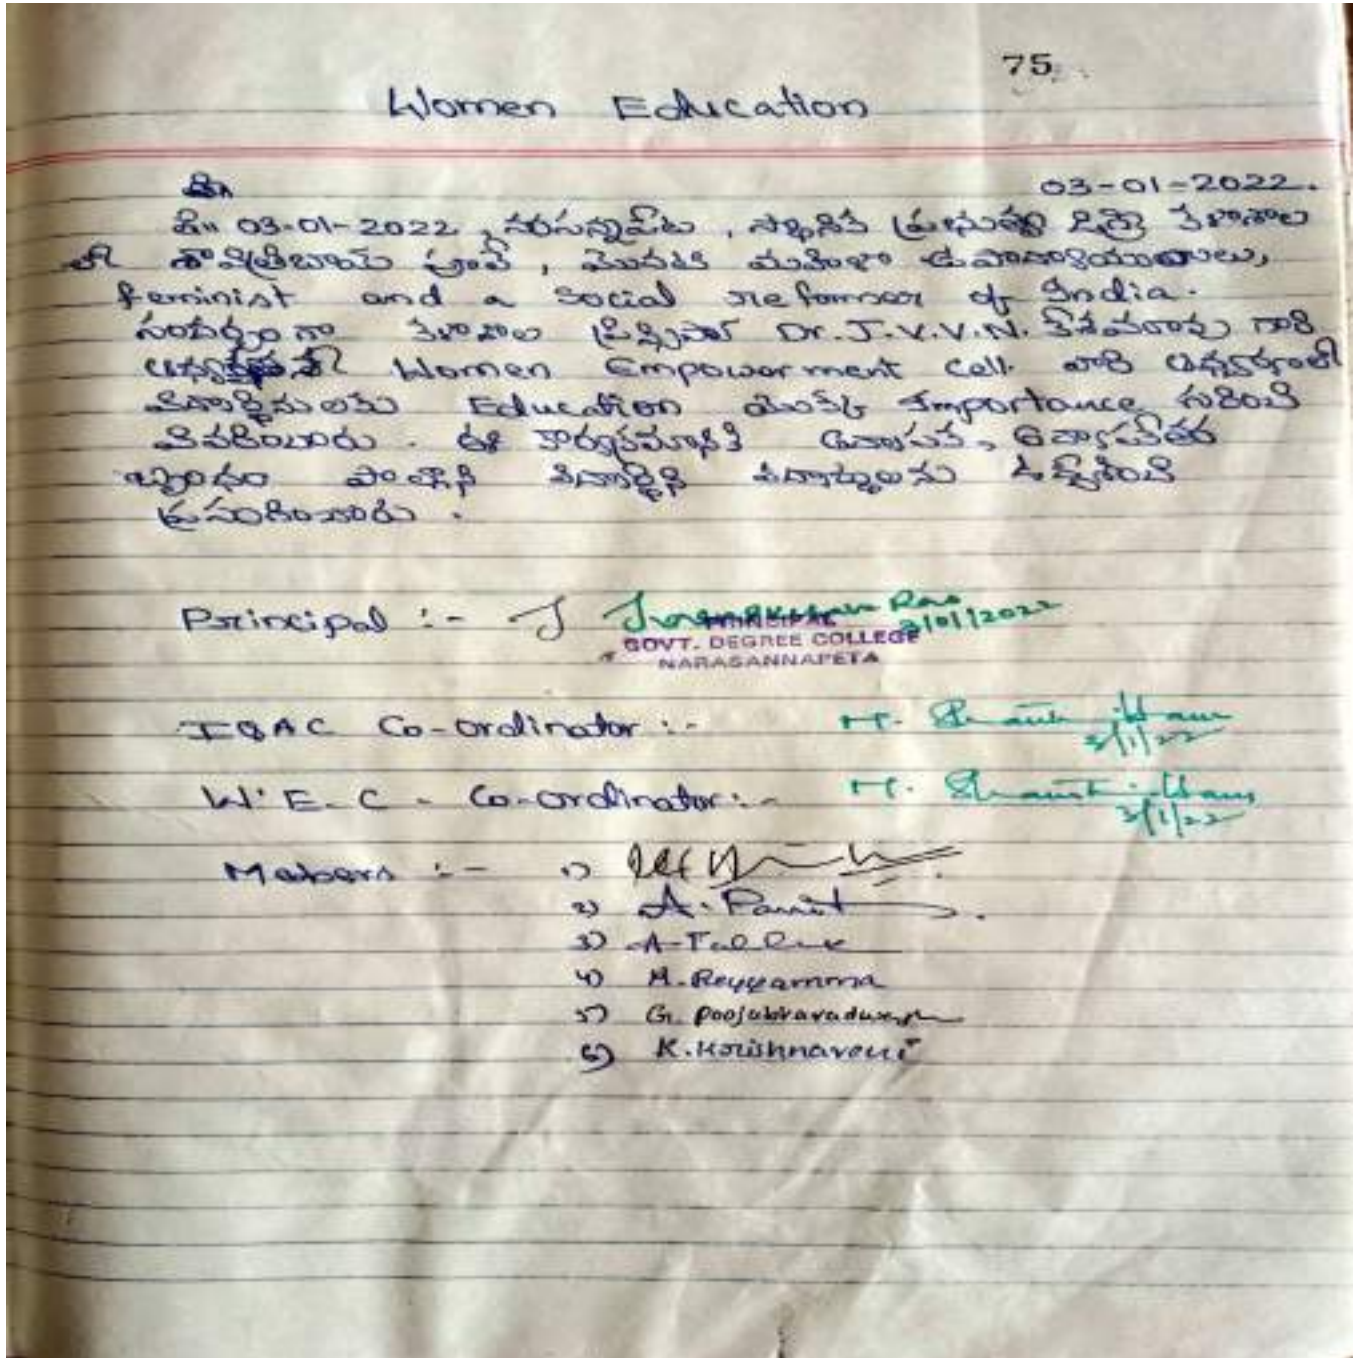 75
Women Education
03-01-2022.
ది॥ 03-01-2022, నరసన్నపేట, స్థానిక ప్రభుత్వ డిగ్రీ కళాశాల
లో సావిత్రిబాయి పూలే, మొదటి మహిళా ఉపాధ్యాయురాలు,
feminist and a social reformer of India.
సందర్భంగా కళాశాల ప్రిన్సిపాల్ Dr. J.V.V.N. కేశవరావు గారి
Women Empowerment cell వారి ఆధ్వర్యంలో
విద్యార్థినులకు Education యొక్క Importance గురించి
వివరించారు. ఈ కార్యక్రమానికి అధ్యాపక, అధ్యాపకేతర
బృందం పాల్గొని విద్యార్థిని విద్యార్థులను ఉద్దేశించి
ప్రసంగించారు.
Principal :- J 3/01/2022
PRINCIPAL
GOVT. DEGREE COLLEGE
NARASANNAPETA
IQAC Co-ordinator :- M.
3/1/22
W.E.C - Co-ordinator :- M.
3/1/22
Mebers :- 1)
2) A.
3) A.
4) M. Reyyamma
5) G.
6) K. Krishnaveni